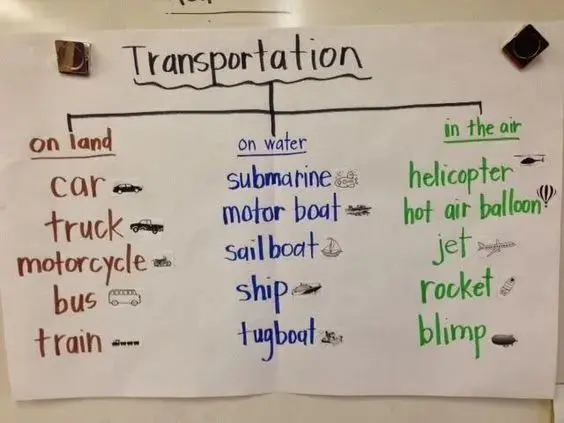 Transportation
on land
car
truck
motorcycle
bus
train
on water
submarine
motor boat
sailboat
ship
tugboat
in the air
helicopter
hot air balloon
jet
rocket
blimp